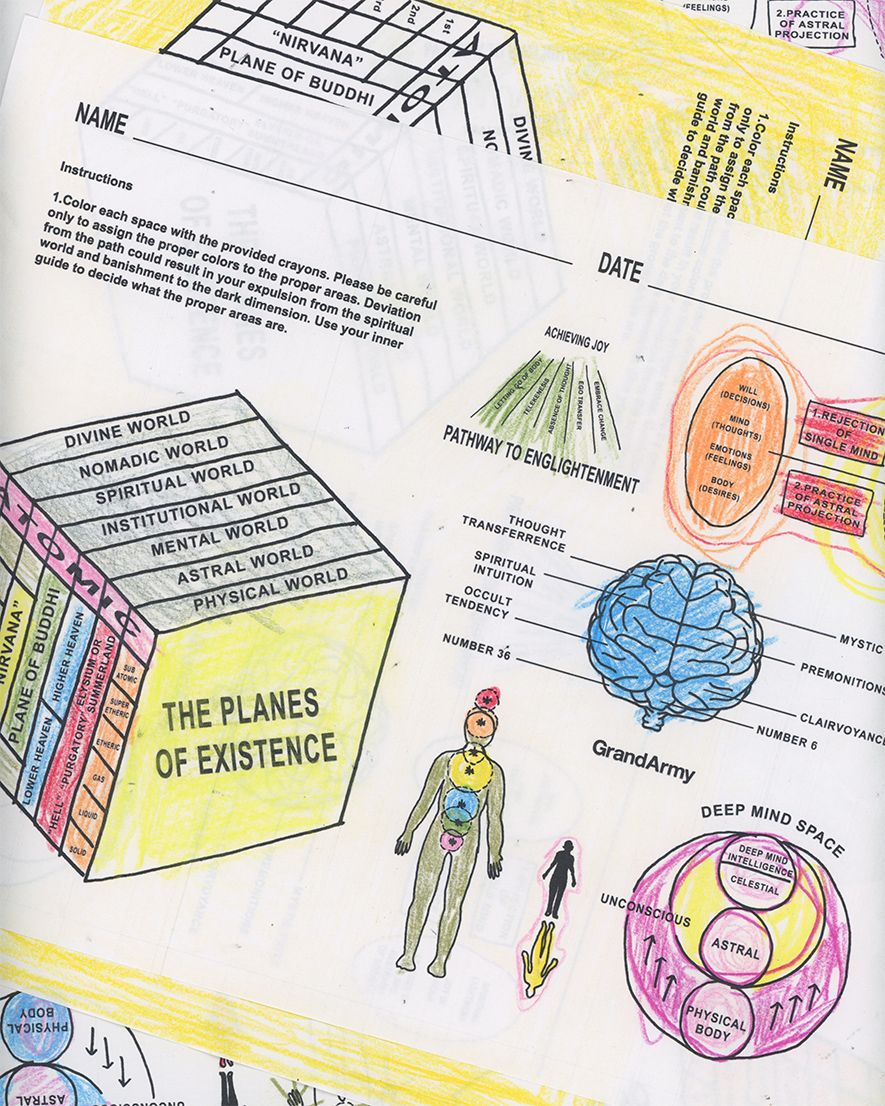 (FEELINGS)
2.PRACTICE
OF ASTRAL
PROJECTION
1st
2nd
3rd
"NIRVANA"
PLANE OF BUDDHI
DIVIN
NO
NAME
Instructions
1.Color each spac
only to assign the
from the path cou
world and banishm
guide to decide wh
NAME
DATE
Instructions
1.Color each space with the provided crayons. Please be careful
only to assign the proper colors to the proper areas. Deviation
from the path could result in your expulsion from the spiritual
world and banishment to the dark dimension. Use your inner
guide to decide what the proper areas are.
ACHIEVING JOY
LETTING GO OF BODY
TELEKENESIS
ABSENCE OF THOUGHT
EGO TRANSFER
EMBRACE CHANGE
PATHWAY TO ENGLIGHTENMENT
WILL
(DECISIONS)
MIND
(THOUGHTS)
EMOTIONS
(FEELINGS)
BODY
(DESIRES)
1.REJECTION
OF
SINGLE MIND
2.PRACTICE
OF ASTRAL
PROJECTION
DIVINE WORLD
NOMADIC WORLD
SPIRITUAL WORLD
INSTITUTIONAL WORLD
MENTAL WORLD
ASTRAL WORLD
PHYSICAL WORLD
ATOMIC
NIRVANA"
PLANE OF BUDDHI
LOWER HEAVEN
HIGHER HEAVEN
"HELL"
"PURGATORY"
ELYSIUM OR
SUMMERLAND
SUB
ATOMIC
SUPER
ETHERIC
ETHERIC
GAS
LIQUID
SOLID
THE PLANES
OF EXISTENCE
THOUGHT
TRANSFERRENCE
SPIRITUAL
INTUITION
OCCULT
TENDENCY
NUMBER 36
MYSTIC
PREMONITIONS
CLAIRVOYANCE
NUMBER 6
GrandArmy
DEEP MIND SPACE
DEEP MIND
INTELLIGENCE
CELESTIAL
UNCONSCIOUS
ASTRAL
PHYSICAL
BODY
PHYSICAL
BODY
ASTRAL
UNCONSCIOUS